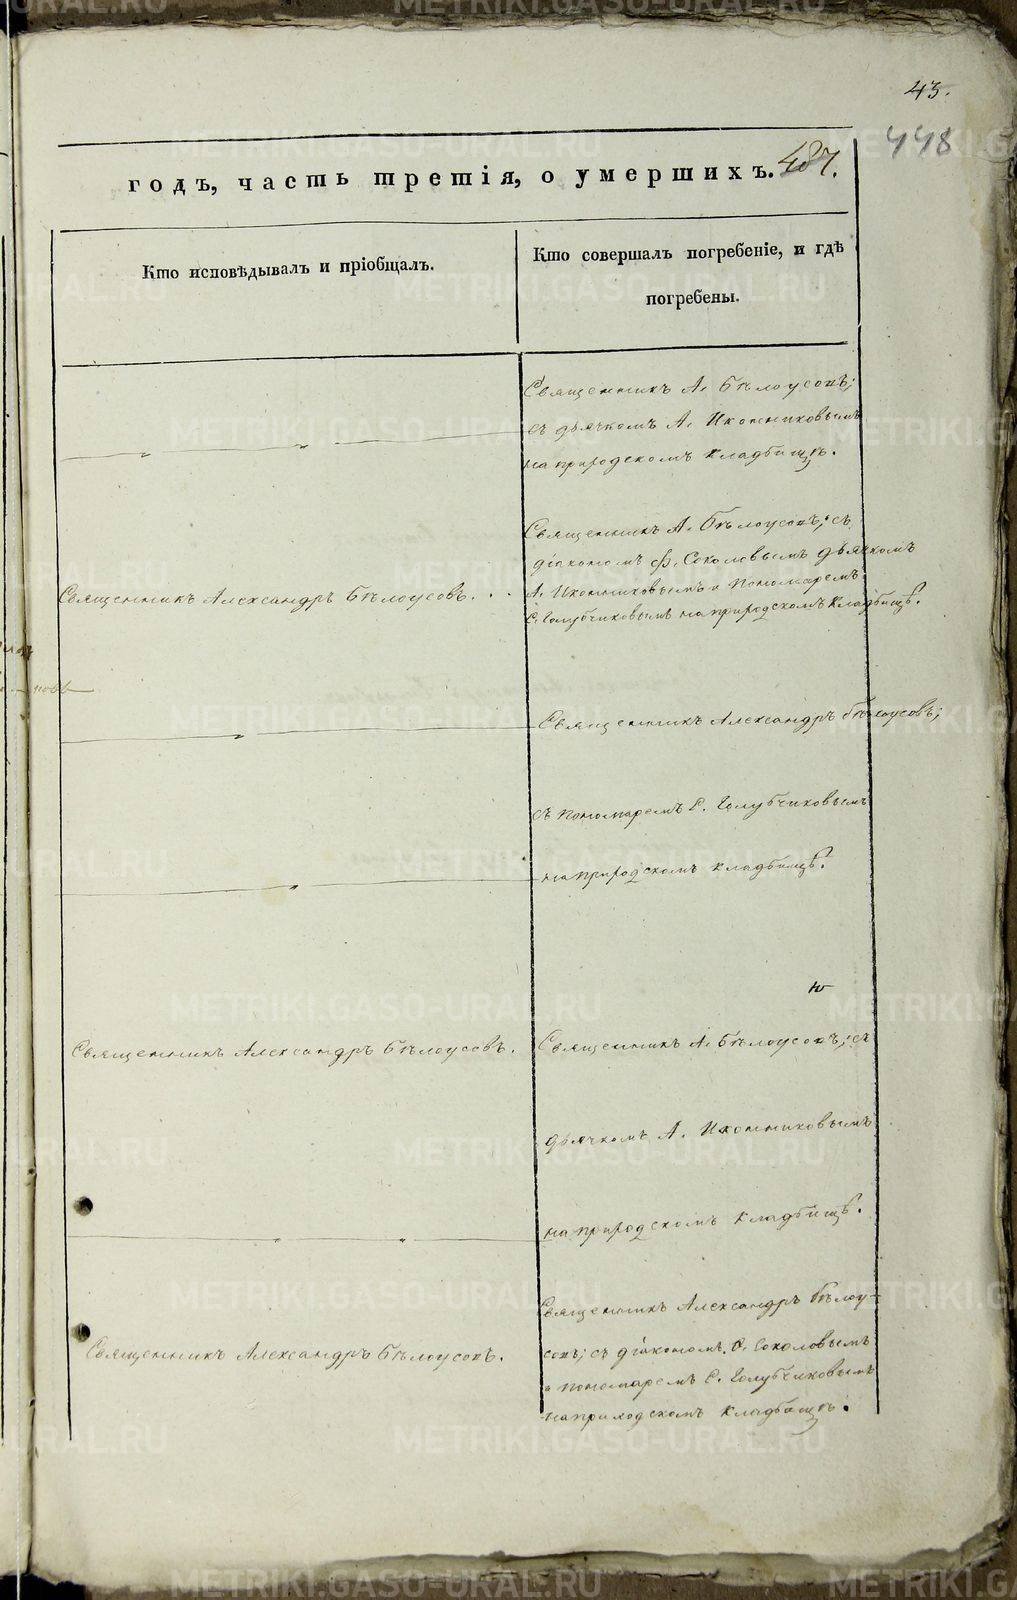 43.
448
годъ, часть третія, о умершихъ. 487.
Кто исповѣдывалъ и пріобщалъ.
Кто совершалъ погребеніе, и гдѣ
погребены.
Священникъ А. Бѣлоусовъ;
съ дьячкомъ А. Иконниковымъ
на приходскомъ кладбищѣ.
Священникъ А. Бѣлоусовъ; съ
діакономъ Ф. Соколовымъ дьячкомъ
Священникъ Александръ Бѣлоусовъ.
А. Иконниковымъ и пономаремъ
С. Голубчиковымъ на приходскомъ кладбищѣ.
Священникъ Александръ Бѣлоусовъ;
съ пономаремъ С. Голубчиковымъ
на приходскомъ кладбищѣ.
Священникъ Александръ Бѣлоусовъ.
Священникъ А. Бѣлоусовъ; съ
дьячкомъ А. Иконниковымъ
на приходскомъ кладбищѣ.
Священникъ Александръ Бѣлоу-
Священникъ Александръ Бѣлоусовъ.
совъ; съ діакономъ Ѳ. Соколовымъ
и пономаремъ С. Голубчиковымъ
на приходскомъ кладбищѣ.
METRIKI.GASO-URAL.RU